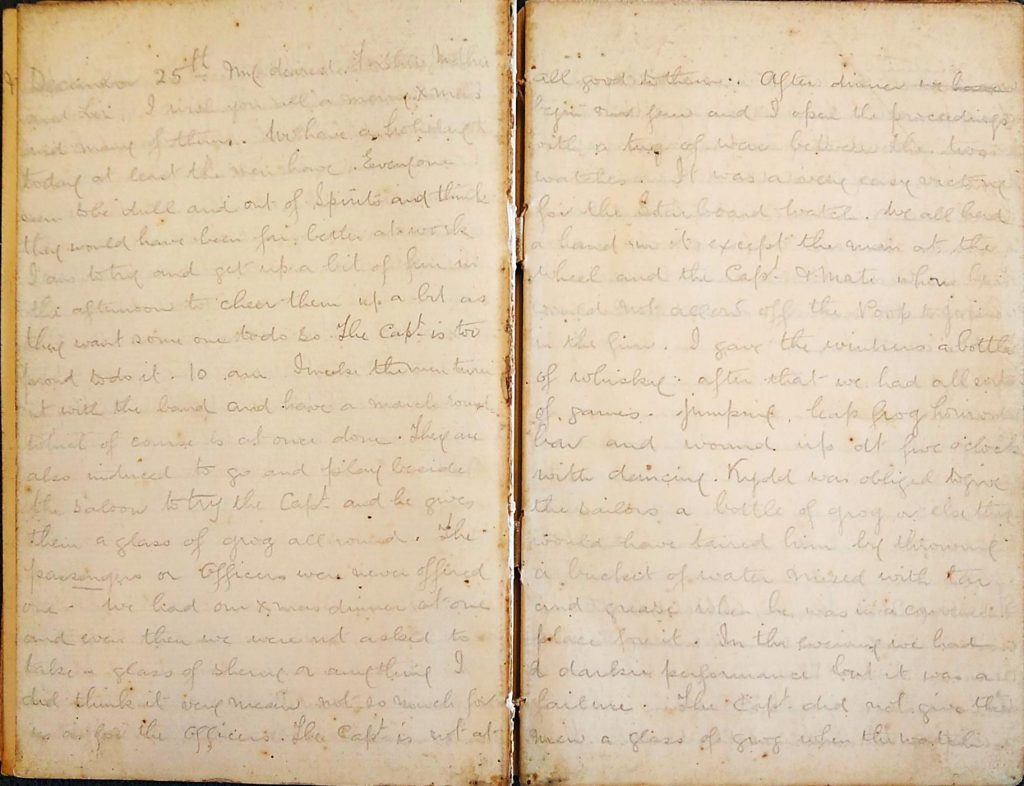 December 25th My dearest Mother
and , I wish you all a merry Xmas
and many of them. We have a holiday
today at least the men have. Everyone
seem to be dull and out of Spirits and think
they would have been far better at work
I am to try and get up a bit of fun in
the afternoon to cheer them up a bit as
they want some one to do so. The Capt. is too
proud to do it. 10 am I make the men turn
out with the band and have a march round
what of course is at once done. They are
also induced to go and play beside
the saloon to try the Capt. and he gives
them a glass of grog all round. The
passengers or Officers were never offered
one. We had our Xmas dinner at one
and even then we were not asked to
take a glass of sherry or anything I
did think it very mean not so much for
us as for the Officers. The Capt. is not at
all good to them. After dinner we
begin our fun and I open the proceedings
with a tug of war between the two
watches. It was a very easy victory
for the Starboard Watch. We all had
a hand in it except the man at the
wheel and the Capt. & Mate whom he
would not allow off the Poop to join
in the fun. I gave the winners a bottle
of whisky. after that we had all sorts
of games. jumping, leap frog
bar and wound up at five o'clock
with dancing. Kydd was obliged to give
the sailors a bottle of grog or else they
would have him by throwing
a bucket of water mixed with tar
and grease when he was in a convenient
place for it. In the evening we had
a darkie performance but it was a
failure. The Capt. did not give the
men a glass of grog when the watch